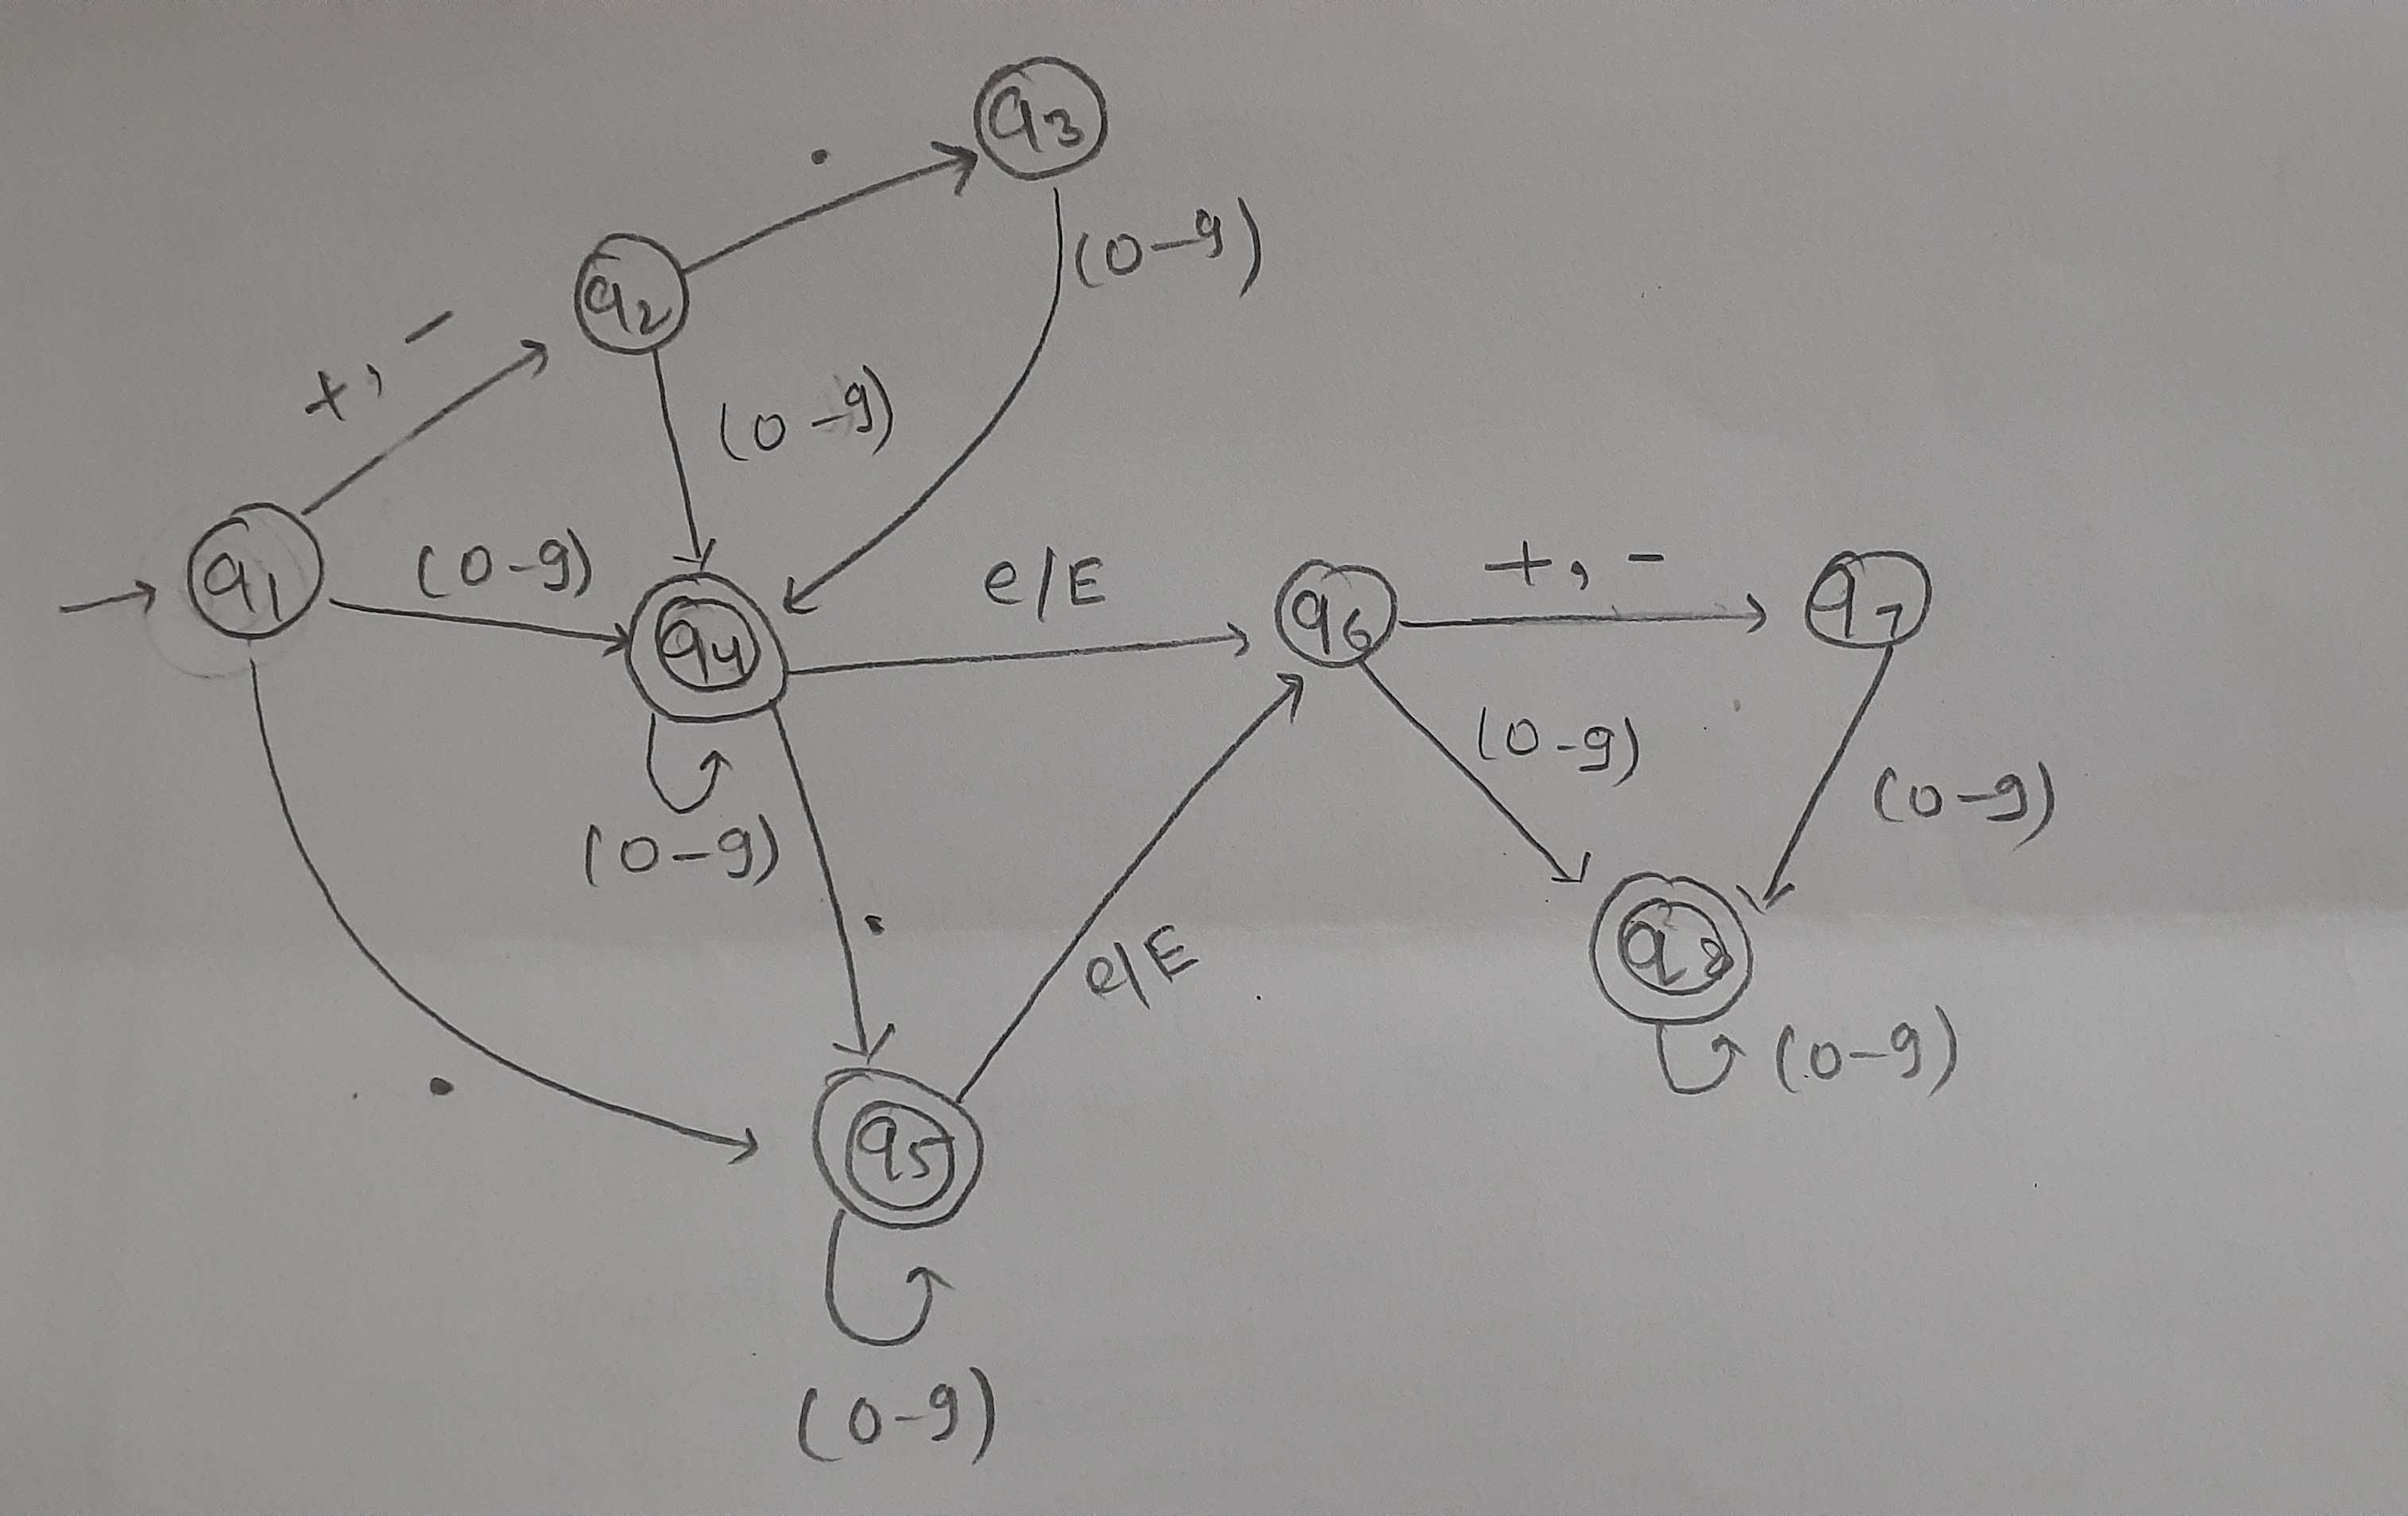 q3
.
(0-9)
q2
+, -
(0-9)
q1
(0-9)
q4
e/E
q6
+, -
q7
(0-9)
(0-9)
(0-9)
.
e/E
q8
(0-9)
.
q5
(0-9)